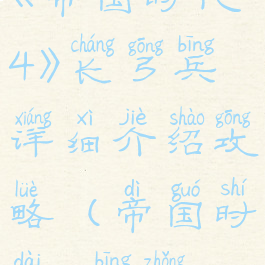 《帝国时代
cháng gōng bīng
4》长弓兵
xiáng xì jiè shào gōng
详细介绍攻
lüè dì guó shí
略（帝国时
dài bīng zhǒng